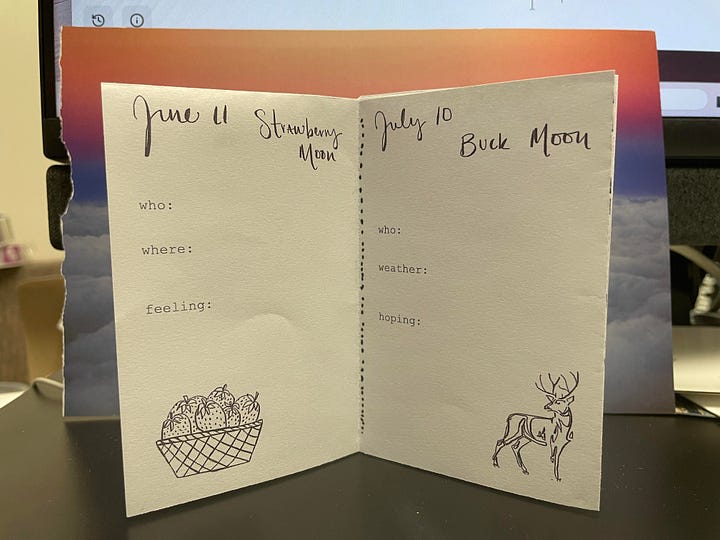 June 11
Strawberry
Moon
who:
where:
feeling:
July 10
Buck Moon
who:
weather:
hoping: